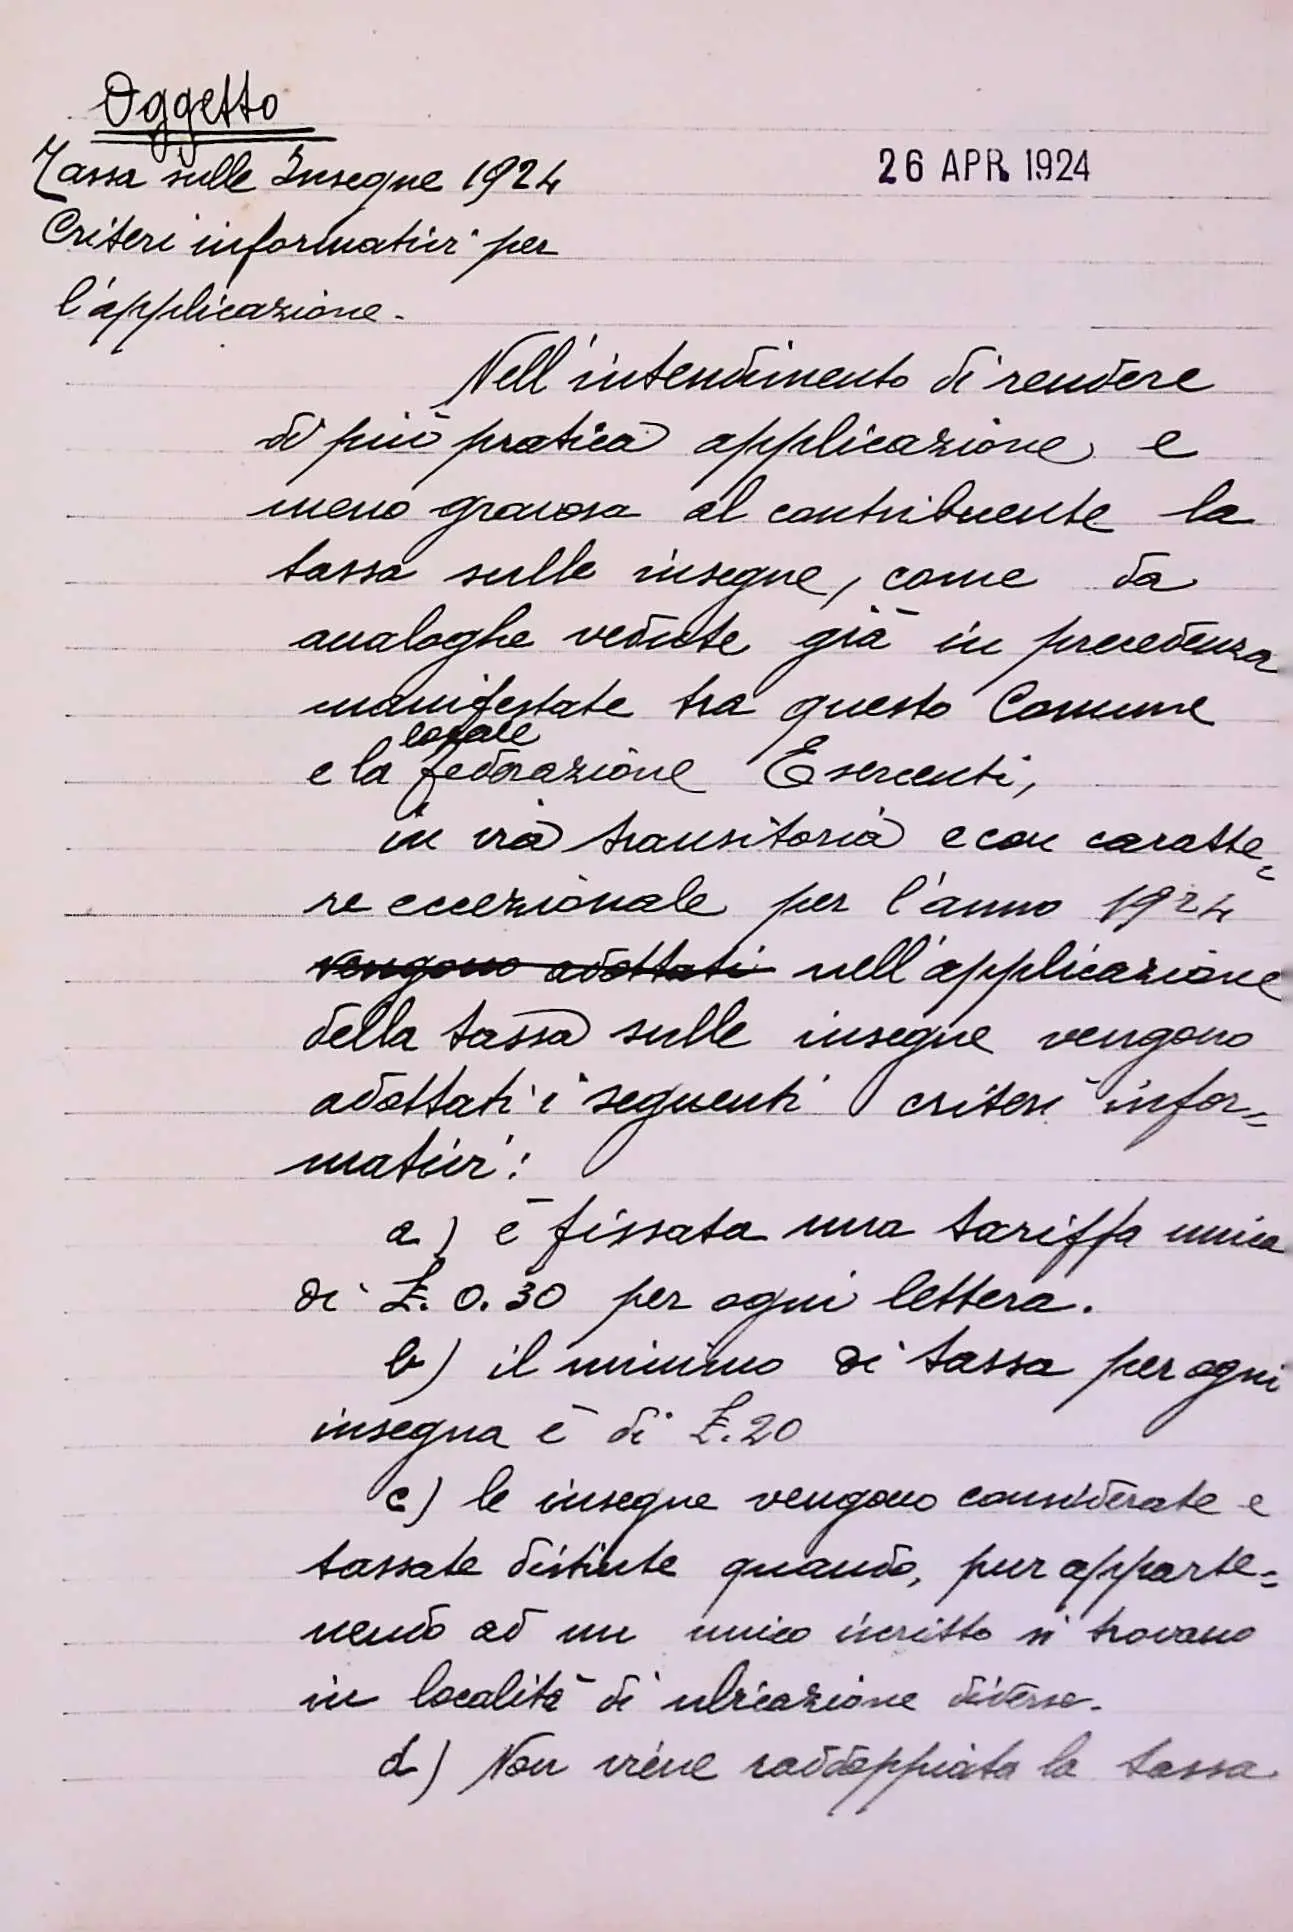 Oggetto
Tassa sulle Insegne 1924
26 APR. 1924
Criteri informativi per
l'applicazione.
Nell'intendimento di rendere
di più pratica applicazione e
meno gravosa al contribuente la
tassa sulle insegne, come da
analoghe vedute già in precedenza
manifestate tra questo Comune
locale
e la federazione Esercenti,
in via transitoria e con caratte=
re eccezionale per l'anno 1924
vengono adottati nell'applicazione
della tassa sulle insegne vengono
adottati i seguenti criteri infor=
mativi:
a) è fissata una tariffa unica
di £. 0.30 per ogni lettera.
b) il minimo di tassa per ogni
insegna è di £. 20
c) le insegne vengono considerate e
tassate distinte quando, pur apparte=
nendo ad un unico iscritto si trovano
in località di ubicazione diverse.
d) Non viene raddoppiata la tassa